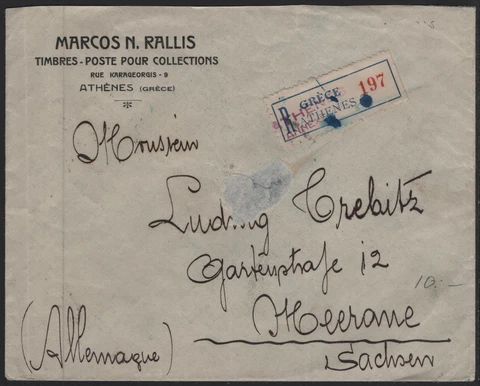 MARCOS N. RALLIS
TIMBRES-POSTE POUR COLLECTIONS
RUE KARAGEORGIS - 9
ATHÈNES (GRÈCE)
R GRÈCE 197
ATHENES
Monsieur
Ludwig Trebitz
Gartenstraße 12
10.-
Meerane
(Allemagne)
Sachsen